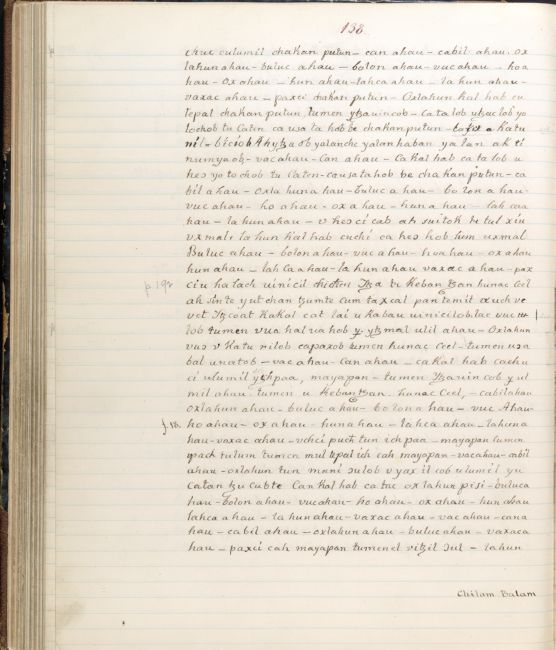 138
chuc culumil chakan putun - can ahau - cabil ahau, ox
lahun ahau - buluc ahau - bolon ahau - vuc ahau - hoa
hau - ox ahau - hun ahau - lahca ahau - la hun ahau -
vaxac ahau - paxci chakan putun - Oxlahun kal hab cu
tepal chakan putun tumen ytzauincob - ca talob u tzucub yo
tochob tu caten ca usa ta hob be chakanputun - katu
nil - biciob Ahytza ob yalanche yalan haban ya lan ak ti
numyaob - vac ahau - Can ahau - Cakal hab ca ta lob u
hes yo to chob tu Caten - ca usatahob be cha kan putun - ca
bil ahau - Oxla hun ahau - buluc a hau - bo lon a hau -
vuc ahau - ho ahau - ox a hau - hun a hau - lah caa
hau - la hun ahau - v hes ci cab ah suitok be tul xiu
uxmal - la hun kal hab cuchi ca hes hob lum uxmal
Buluc ahau - bolon ahau - vuc ahau - hoa hau - ox ahau
hun ahau - lah Ca ahau - la hun ahau vaxac a hau - pax
p 192
ci u halach uinicil chichen Ytza tu keban tzan hunac Ceel
ah sinte yut chan tzumte cum taxcal pantemit xuch ve
vet Ytzcoat Kakal cat lai u kabau uinicilob lae vuc tu
lob tumen vua hal va hob y ytzmal ulil ahau - Oxlahun
vuc v katu nilob capaxob tumen hunac Ceel - tumen usa
bal unatob - vac ahau - Can ahau - ca kal hab cachu
ci ulumil ychpaa, mayapan - tumen Ytzauin cob y ul
mil ahau - tumen u keban tzan. hunac Ceel, - cabil ahau
oxlahun ahau - buluc a hau - bo lon a hau - vuc Ahau -
f.18. ho ahau - ox a hau - hun a hau - lahca ahau - lahuna
hau - vaxac ahau - vchci puch tun ich paa - mayapan tumen
upach tulum tumen mul tepal ich cah mayapan - vac ahau - cabil
ahau - oxlahun tun mani sulob u yax il cob u lumil yu
catan tzu cubte Can kal hab ca tac oxlahun pisi - buluca
hau - bolon ahau - vuc ahau - ho ahau - ox ahau - hun ahau
lahca ahau - la hun ahau - vaxac ahau - vac ahau - cana
hau - cabil ahau - oxlahun ahau - buluc ahau - vaxaca
hau - paxci cah mayapan tumenel vitzil sul - lahun
Chilam Balam